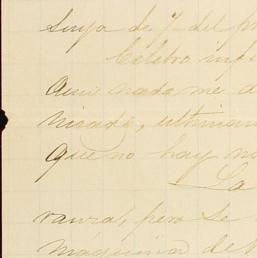 suya de 7 del p
Celebro inf
Aun nada me d
nicado, ultimam
que no hay no
La
ranza, pero se
máquina de